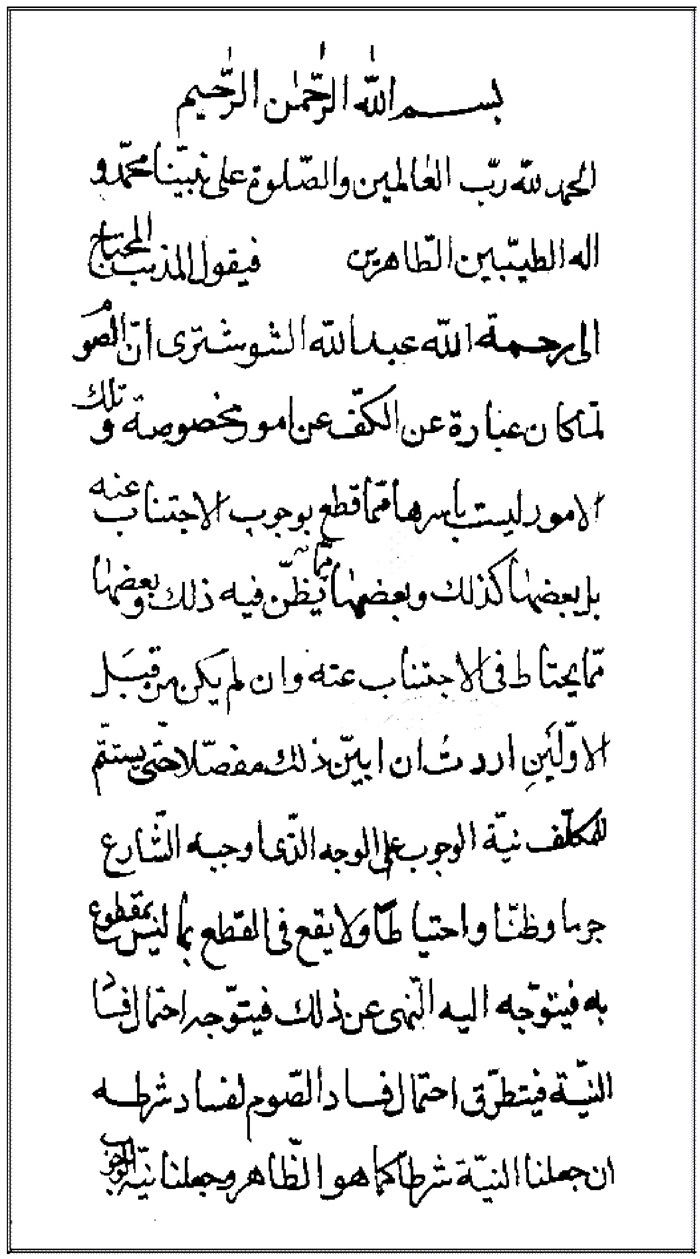 بسم الله الرّحمٰن الرّحیم
الحمد للّه ربّ العٰالمین والصّلوة علی نبیّنا محمّد و
اله الطیّبین الطّاهرین فیقول المذنب المحتاج
الی رحمة اللّه عبد اللّه الشوشتری انّ الصّوم
لمّا کان عبارة عن الکفّ عن امور مخصوصة و تلک
الامور لیست باسرها ممّا قطع بوجوب الاجتناب عنه
بل بعضهٰا کذلک و بعضهٰا ممّا یظنّ فیه ذلک و بعضهٰا
ممّا یحتاط فی الاجتناب عنه وان لم یکن من قبَل
الاوّلَینِ اردتُ ان ابیّن ذلک مفصّلا حتّی یستتمّ
للمکلّف نیّة الوجوب علی الوجه الذّی اوجبه الشّارع
جزما وظنّا واحتیاطا ولا یقع فی القطع بما لیس بمقطوع
به فیتوجّه الیه النّهی عن ذلک فیتوّجه احتمال فساد
النیّة فیتطرّق احتمال فساد الصّوم لفساد شرطه
ان جعلنا النیّة شرطا کما هو الظّاهر وجعلنا نیّة الوجوب